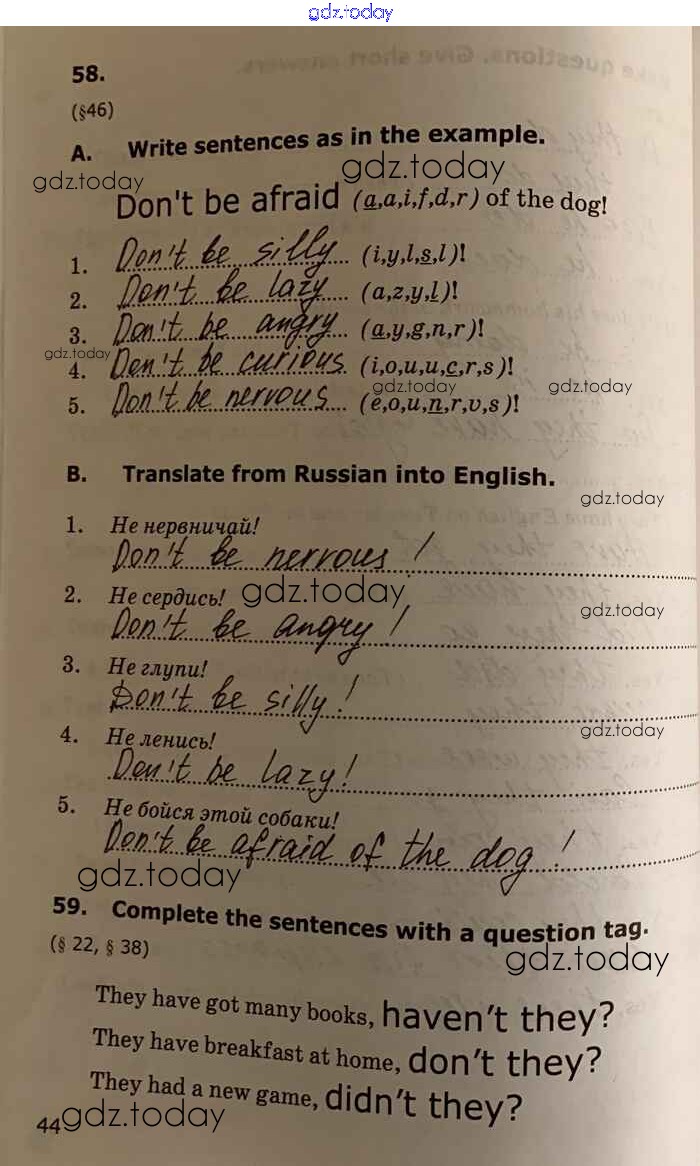 gdz.today
58.
(§46)
A. Write sentences as in the example.
gdz.today
gdz.today
Don't be afraid (a,a,i,f,d,r) of the dog!
1. Don't be silly (i,y,l,s,l)!
2. Don't be lazy (a,z,y,l)!
3. Don't be angry (a,y,g,n,r)!
gdz.today
4. Don't be curious (i,o,u,u,c,r,s)!
gdz.today gdz.today
5. Don't be nervous (e,o,u,n,r,v,s)!
B. Translate from Russian into English.
gdz.today
1. Не нервничай!
Don't be nervous!
2. Не сердись! gdz.today
gdz.today
Don't be angry!
3. Не глупи!
Don't be silly!
gdz.today
4. Не ленись!
Don't be lazy!
5. Не бойся этой собаки!
Don't be afraid of the dog!
gdz.today
59. Complete the sentences with a question tag.
(§ 22, § 38)
gdz.today
They have got many books, haven't they?
They have breakfast at home, don't they?
They had a new game, didn't they?
44 gdz.today